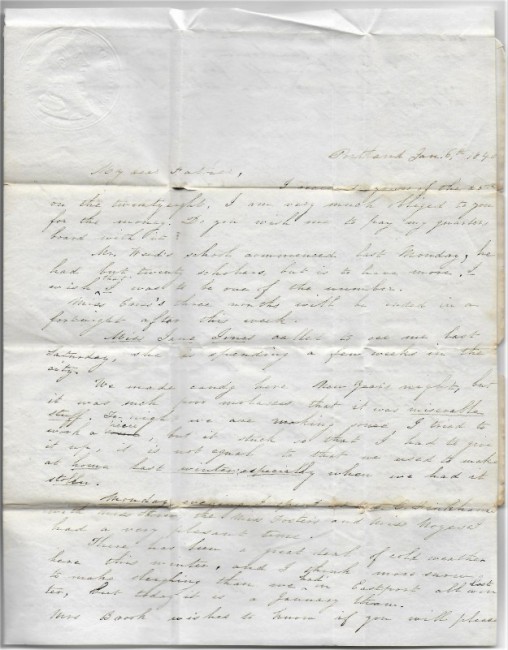 Portland Jan. 8th, 184
My dear Father,
I yours of the
on the twentyeight, I am very much obliged to you
for the money. Do you wish me to pay my quarters
board with it?
Mr. school commenced last Monday, he
had but twenty scholars, but is to have more, I
wish that I was to be one of the number.
Miss three months will be ended in a
fortnight after this week.
Miss Jane Jones called to see me last
Saturday, she is spending a few weeks in the
city.
We made candy here New Years night, but
it was such poor molasses that it was miserable
stuff, we are making some, I tried to
a piece, but it stuck so that I had to give
it up, it is not equal to that we used to make
at home last winter, especially when we had it
stolen.
Monday evening I
and there the Miss and Miss
had a very pleasant time.
There has been a great deal of cold weather
here this winter, and I think more snow,
to make sleighing than we had in Eastport all last win
ter, but today it is a January thaw.
Mrs wishes to know if you will please